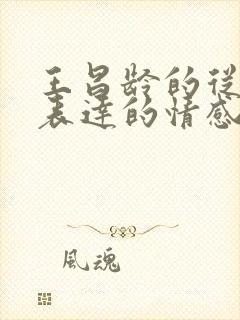 王昌龄的从
表达的情感
風魂